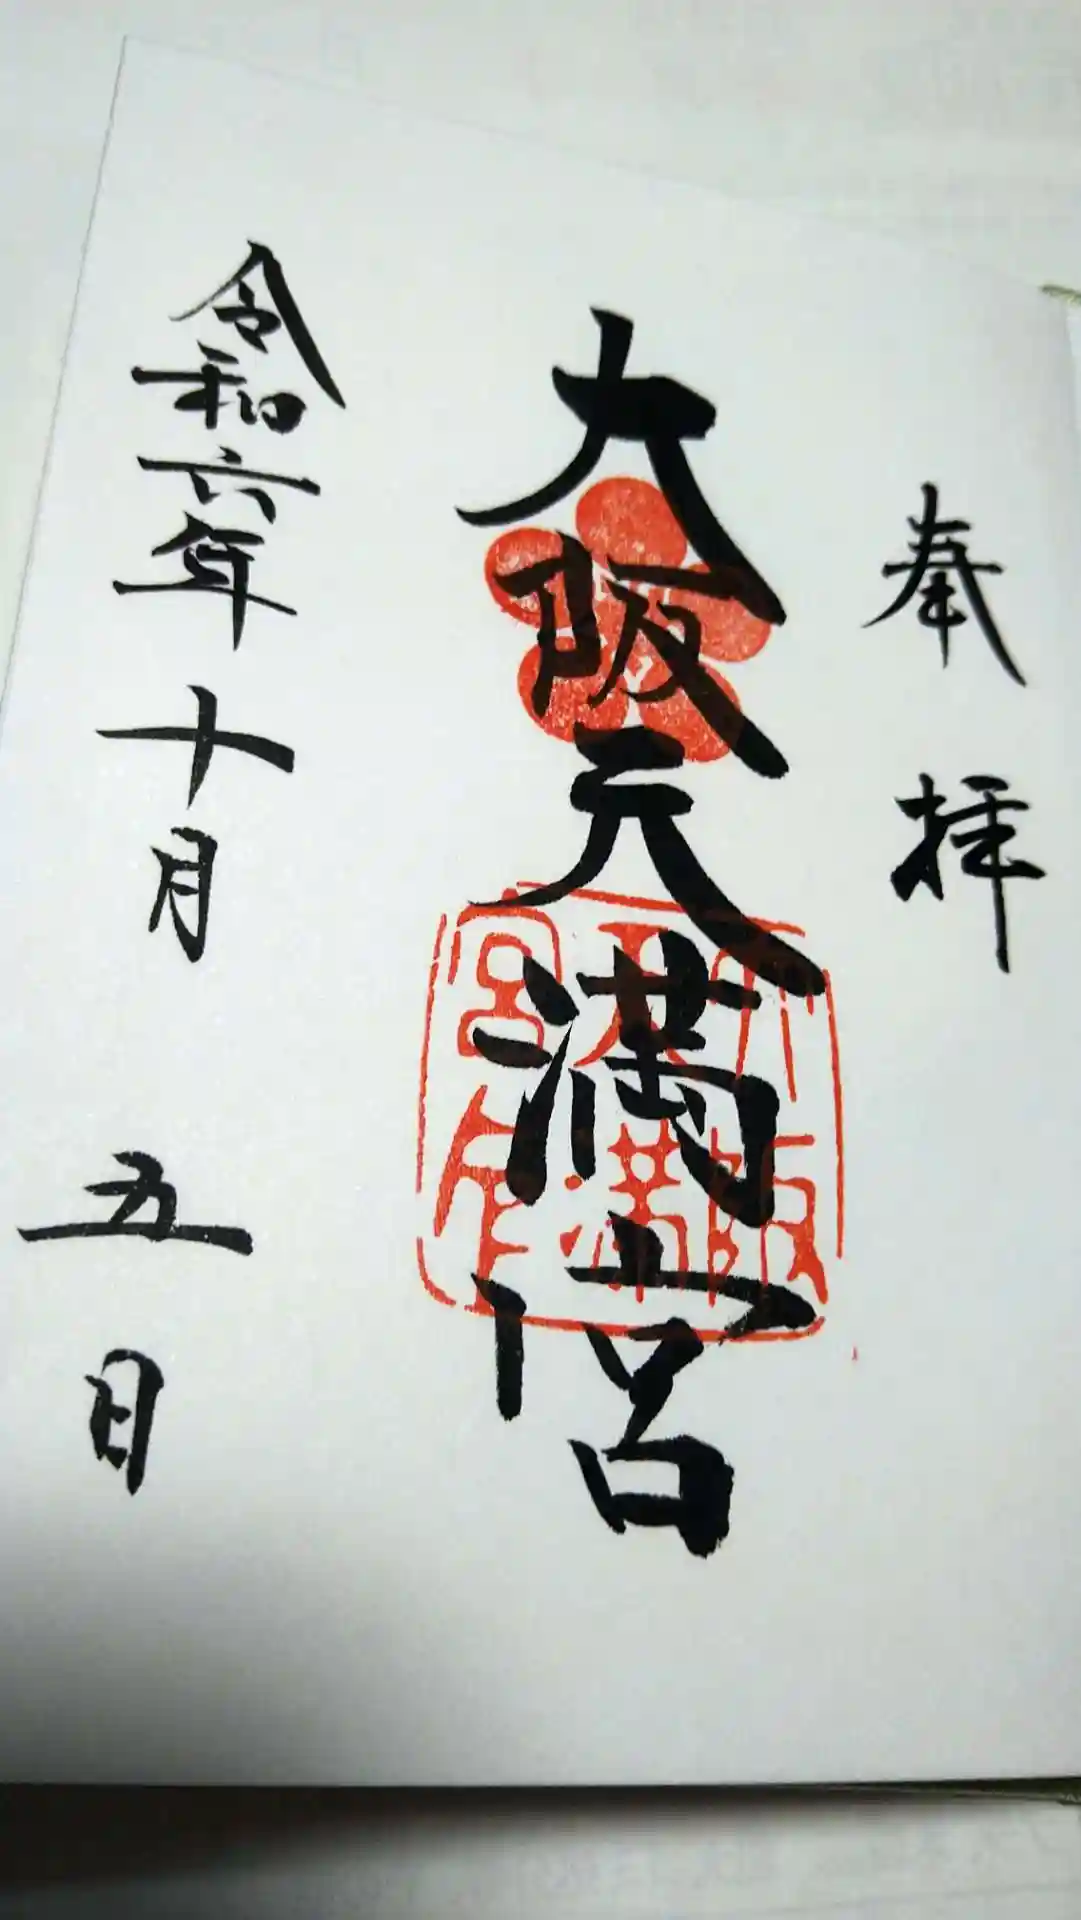 奉拝
大阪天満宮
大阪天満宮印
令和六年十月五日